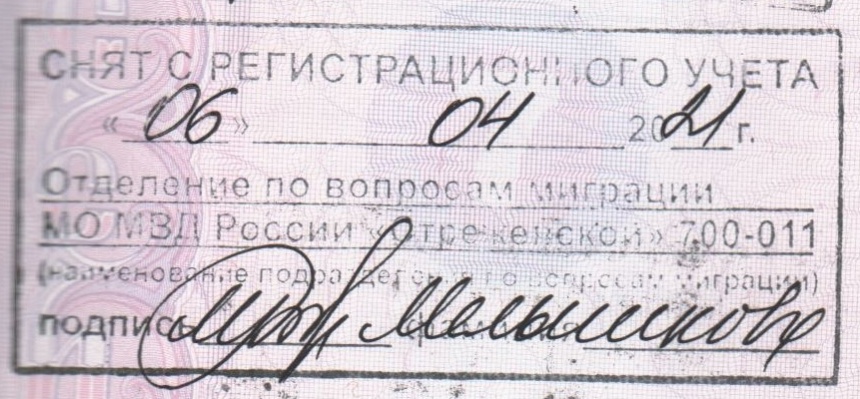 СНЯТ С РЕГИСТРАЦИОННОГО УЧЕТА
« 06 » 04 2021 г.
Отделение по вопросам миграции
МО МВД России « 700-011
(наименование подразделения по вопросам миграции)
подпись Мельникова